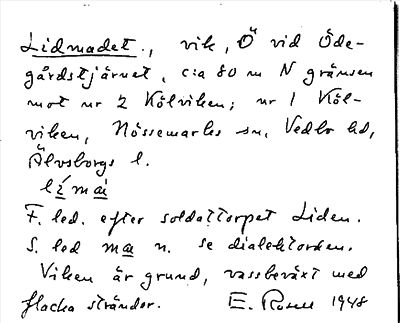 Lidmadet., vik, Ö vid Öde-
gårdstjärnet, c:a 80 m N gränsen
mot nr 2 Kölviken; nr 1 Köl-
viken, Nössemarks sn, Vedbo hd,
Älvsborgs l.
F. led. efter soldattorpet Liden.
S. led ma n. se dialektorden.
Viken är grund, vassbeväxt med
flacka stränder. E. Rosell 1948